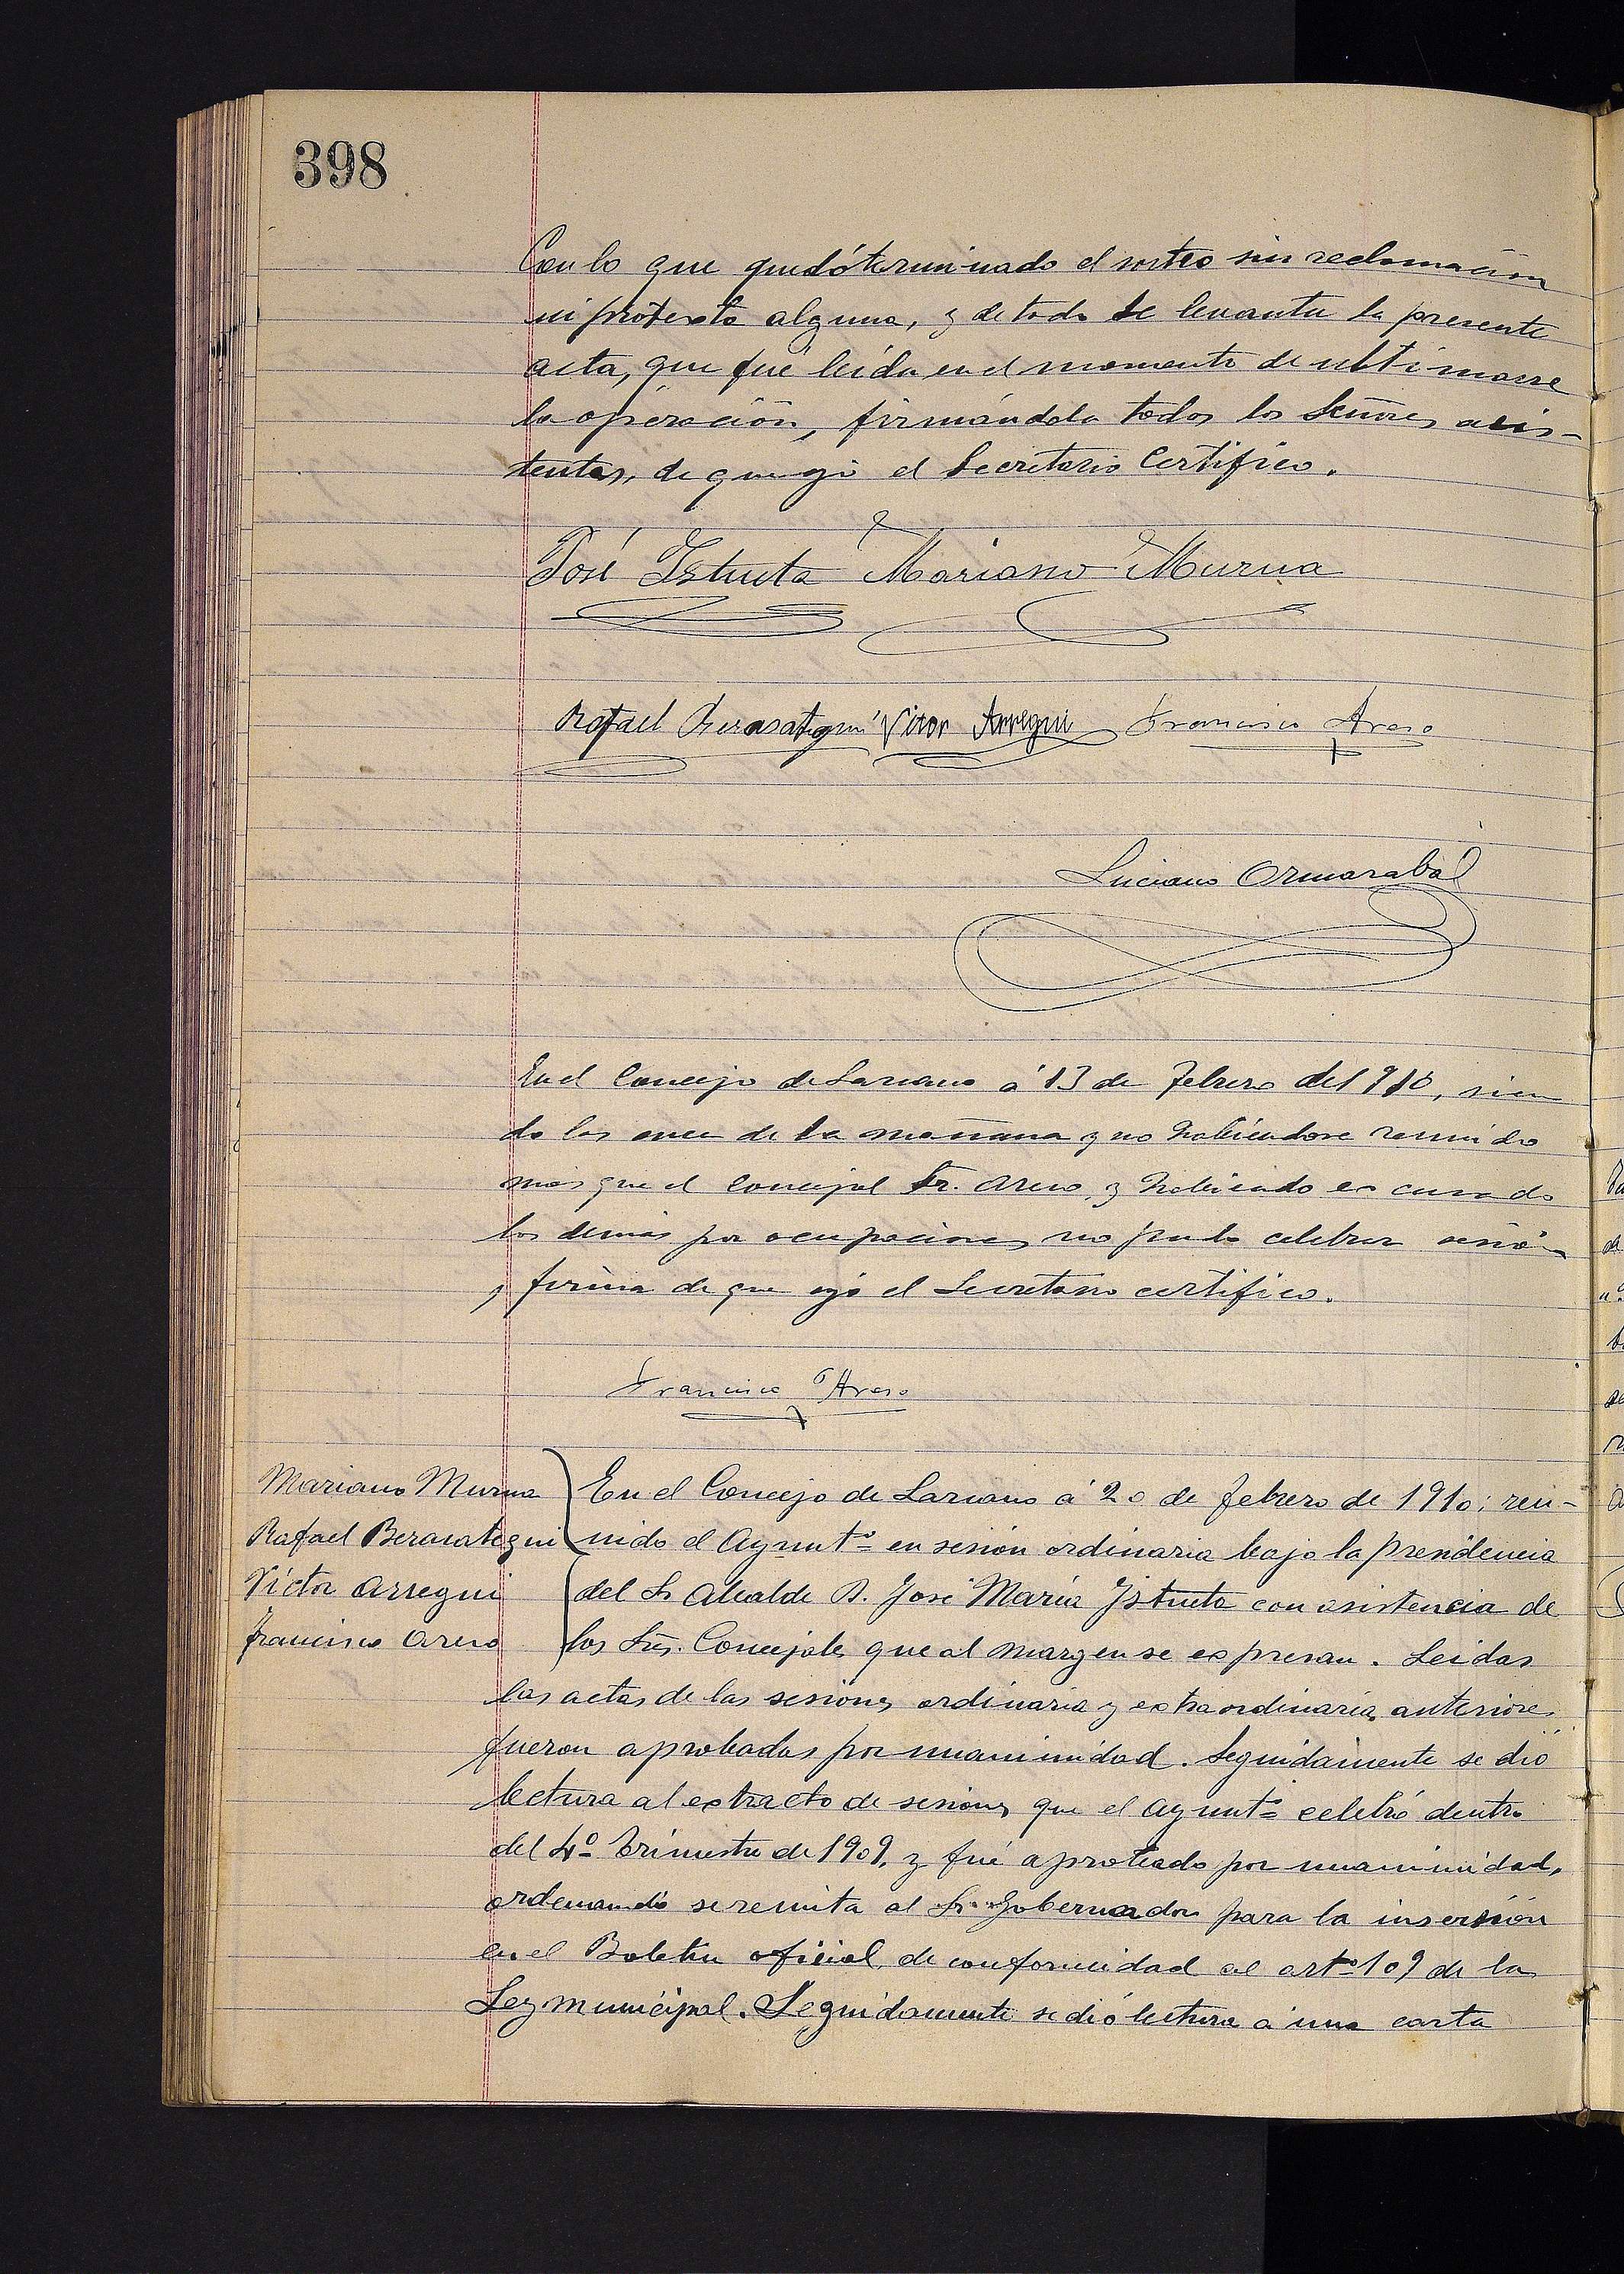 398
Con lo que quedó terminado el sorteo sin reclamación
ni protesta alguna, y de todo se levanta la presente
acta, que fué leida en el momento de ultimarse
la operación, firmándola todos los Señores asis-
tentes, de que yo el Secretario Certifico.
José Istueta Mariano Murua
Rafael Berasategui Vitor Arregui Francisco Areso
Luciano Ormazabal
En el Concejo de Lazcano á 13 de Febrero de 1910, sien
do las once de la mañana y no habiendose reunido
mas que el Concejal Sr. Areso, y habiendo escusado
los demás por ocupaciones no pudo celebrar sesión
y firma de que yo el Secretario certifico.
Francisco Areso
Mariano Murua
Rafael Berasategui
Víctor Arregui
Francisco Areso
En el Concejo de Lazcano á 20 de febrero de 1910; reu-
nido el Ayuntº en sesión ordinaria bajo la presidencia
del Sr Alcalde D. José María Istueta con asistencia de
los Sres. Concejales que al margen se espresan. Leidas
las actas de las sesiones ordinaria y extraordinaria anteriores
fueron aprobadas por unanimidad. Seguidamente se dió
lectura al extracto de sesiones que el Ayuntº celebró dentro
del 4º trimestre de 1909, y fué aprobado por unanimidad,
ordenando se remita al Sr. Gobernador para la inserción
en el Boletin oficial, de conformidad al artº 109 de la
Ley municipal. Seguidamente se dió lectura á una carta